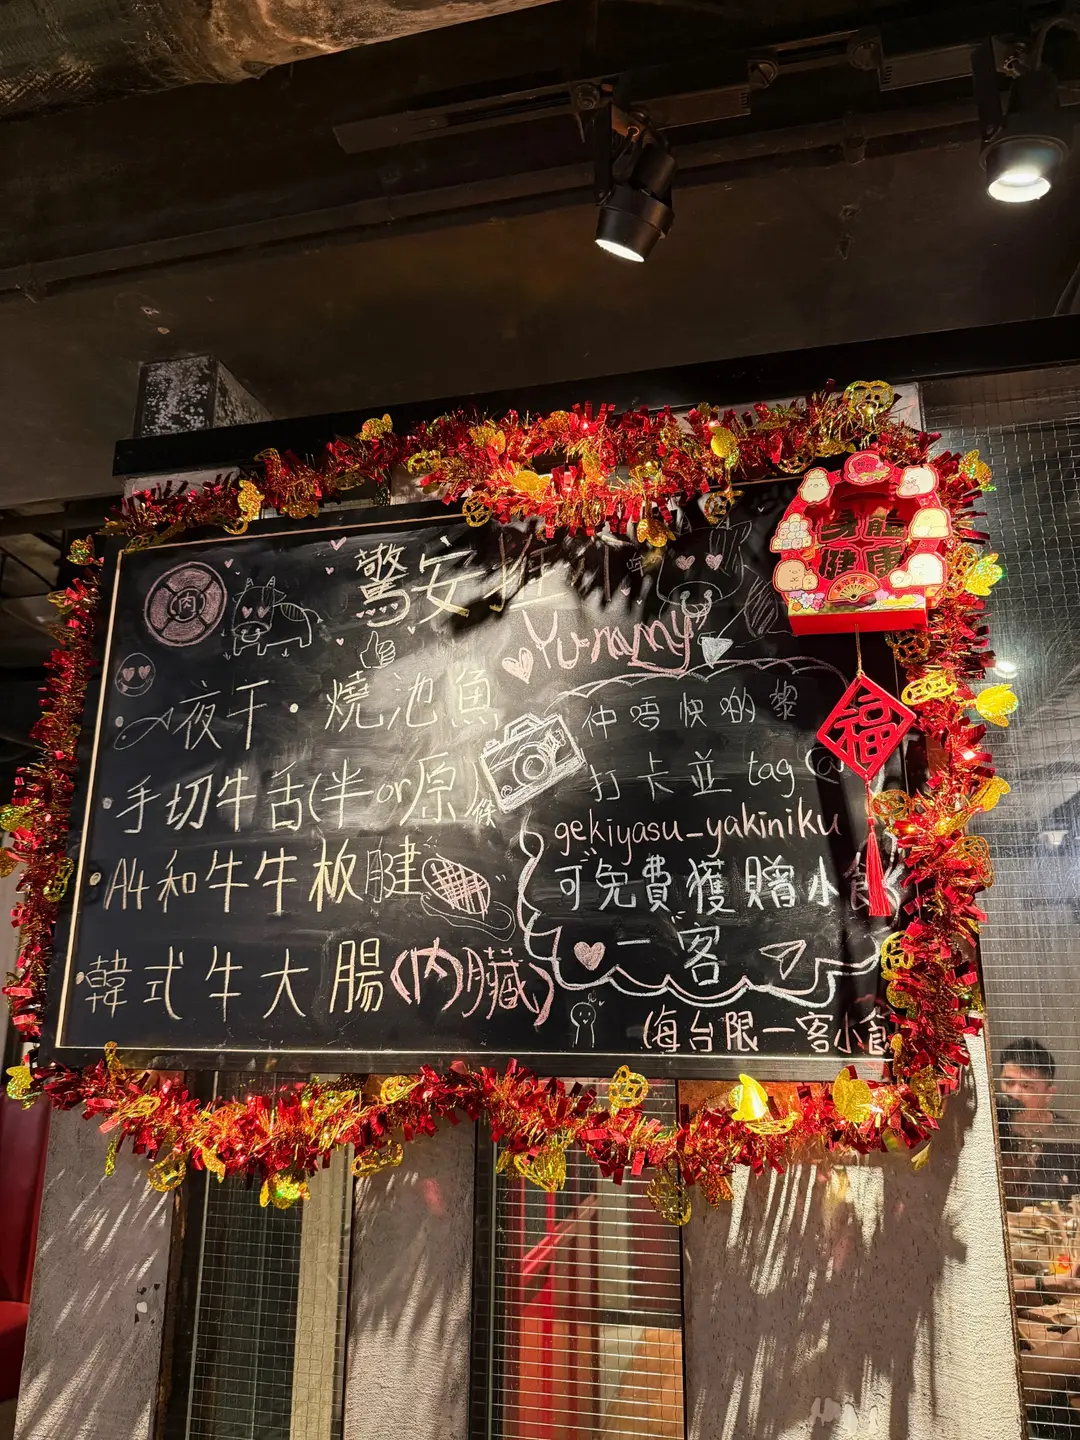 肉
驚安推介
Yummy
夜干・燒池魚
手切牛舌(半or原條)
A4和牛牛板腱
韓式牛大腸(內臟)
仲唔快啲黎
打卡並 tag @
gekiyasu_yakiniku
可免費獲贈小食
一客
(每台限一客小食
身體
健康
福